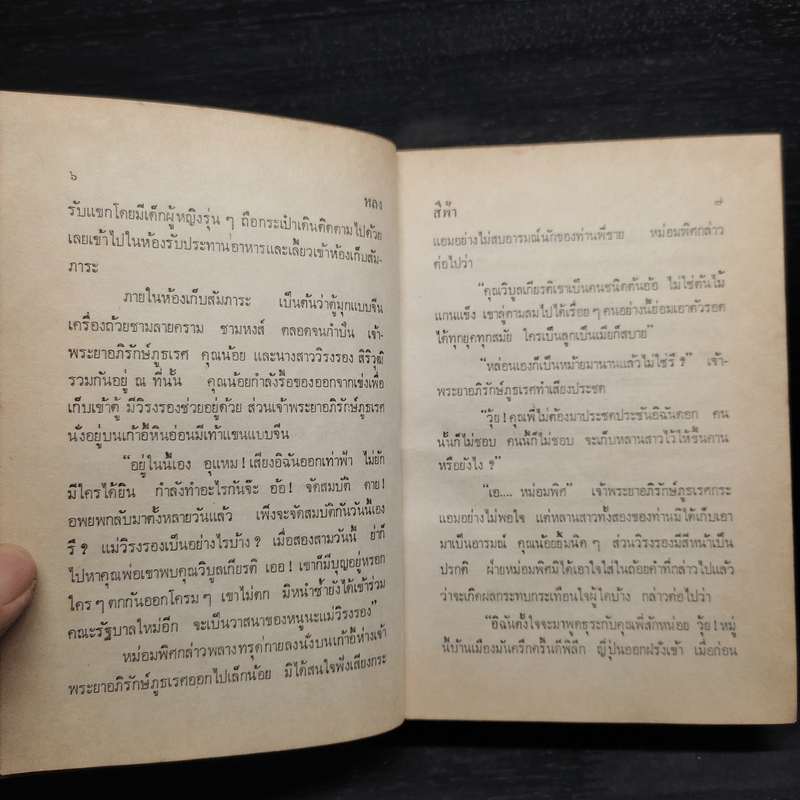 ๖
หลง
รับแขกโดยมีเด็กผู้หญิงรุ่น ๆ ถือกระเป๋าเดินติดตามไปด้วย
เลยเข้าไปในห้องรับประทานอาหารและเลี้ยวเข้าห้องเก็บสัม-
ภาระ
ภายในห้องเก็บสัมภาระ เป็นต้นว่าตู้มุกแบบจีน
เครื่องถ้วยชามลายคราม ชามหงส์ ตลอดจนกำปั่น เจ้า-
พระยาอภิรักษ์ภูธเรศ คุณน้อย และนางสาววิรงรอง สิริวุฒิ
รวมกันอยู่ ณ ที่นั้น คุณน้อยกำลังรื้อของออกจากเข่งเพื่อ
เก็บเข้าตู้ มีวิรงรองช่วยอยู่ด้วย ส่วนเจ้าพระยาอภิรักษ์ภูธเรศ
นั่งอยู่บนเก้าอี้หินอ่อนมีเท้าแขนแบบจีน
“อยู่ในนี้เอง อุแหม ! เสียงอิฉันออกเท่าฟ้า ไม่ยัก
มีใครได้ยิน กำลังทำอะไรกันจ๊ะ อ้อ ! จัดสมบัติ ตาย !
อพยพกลับมาตั้งหลายวันแล้ว เพิ่งจะจัดสมบัติกันวันนี้เอง
รึ ? แม่วิรงรองเป็นอย่างไรบ้าง ? เมื่อสองสามวันนี้ ย่าก็
ไปหาคุณพ่อเขาพบคุณวิบูลเกียรติ เออ ! เขาก็มีบุญอยู่หรอก
ใคร ๆ ตกกันออกโครม ๆ เขาไม่ตก มิหนำซ้ำยังได้เข้าร่วม
คณะรัฐบาลใหม่อีก จะเป็นวาสนาของหนูนะแม่วิรงรอง”
หม่อมพิศกล่าวพลางทรุดกายลงนั่งบนเก้าอี้ห่างเจ้า
พระยาอภิรักษ์ภูธเรศออกไปเล็กน้อย มิได้สนใจฟังเสียงกระ
สีฟ้า
๗
แอมอย่างไม่สบอารมณ์นักของท่านพี่ชาย หม่อมพิศกล่าว
ต่อไปว่า
“คุณวิบูลเกียรติเขาเป็นคนชนิดต้นอ้อ ไม่ใช่ต้นไม้
แกนแข็ง เขาลู่ตามลมไปได้เรื่อย ๆ คนอย่างนี้ย่อมเอาตัวรอด
ได้ทุกยุคทุกสมัย ใครเป็นลูกเป็นเมียก็สบาย”
“หล่อนเองก็เป็นหม้ายมานานแล้วไม่ใช่รึ ? เจ้า-
พระยาอภิรักษ์ภูธเรศทำเสียงประชด
“วุ้ย ! คุณพี่ไม่ต้องมาประชดประชันอิฉันดอก คน
นั้นก็ไม่ชอบ คนนี้ก็ไม่ชอบ จะเก็บหลานสาวไว้ให้ขึ้นคาน
หรือยังไง ?”
“เอ.... หม่อมพิศ” เจ้าพระยาอภิรักษ์ภูธเรศกระ
แอมอย่างไม่พอใจ แต่หลานสาวทั้งสองของท่านมิได้เก็บเอา
มาเป็นอารมณ์ คุณน้อยยิ้มนิด ๆ ส่วนวิรงรองมีสีหน้าเป็น
ปรกติ ฝ่ายหม่อมพิศมิได้เอาใจใส่ในถ้อยคำที่กล่าวไปแล้ว
ว่าจะเกิดผลกระทบกระเทือนใจผู้ใดบ้าง กล่าวต่อไปว่า
“อิฉันตั้งใจจะมาพูดธุระกับคุณพี่สักหน่อย วุ้ย ! หมู่
นี้บ้านเมืองมันครึกครื้นก็พิลึก ญี่ปุ่นออกฝรั่งเข้า เมื่อก่อน